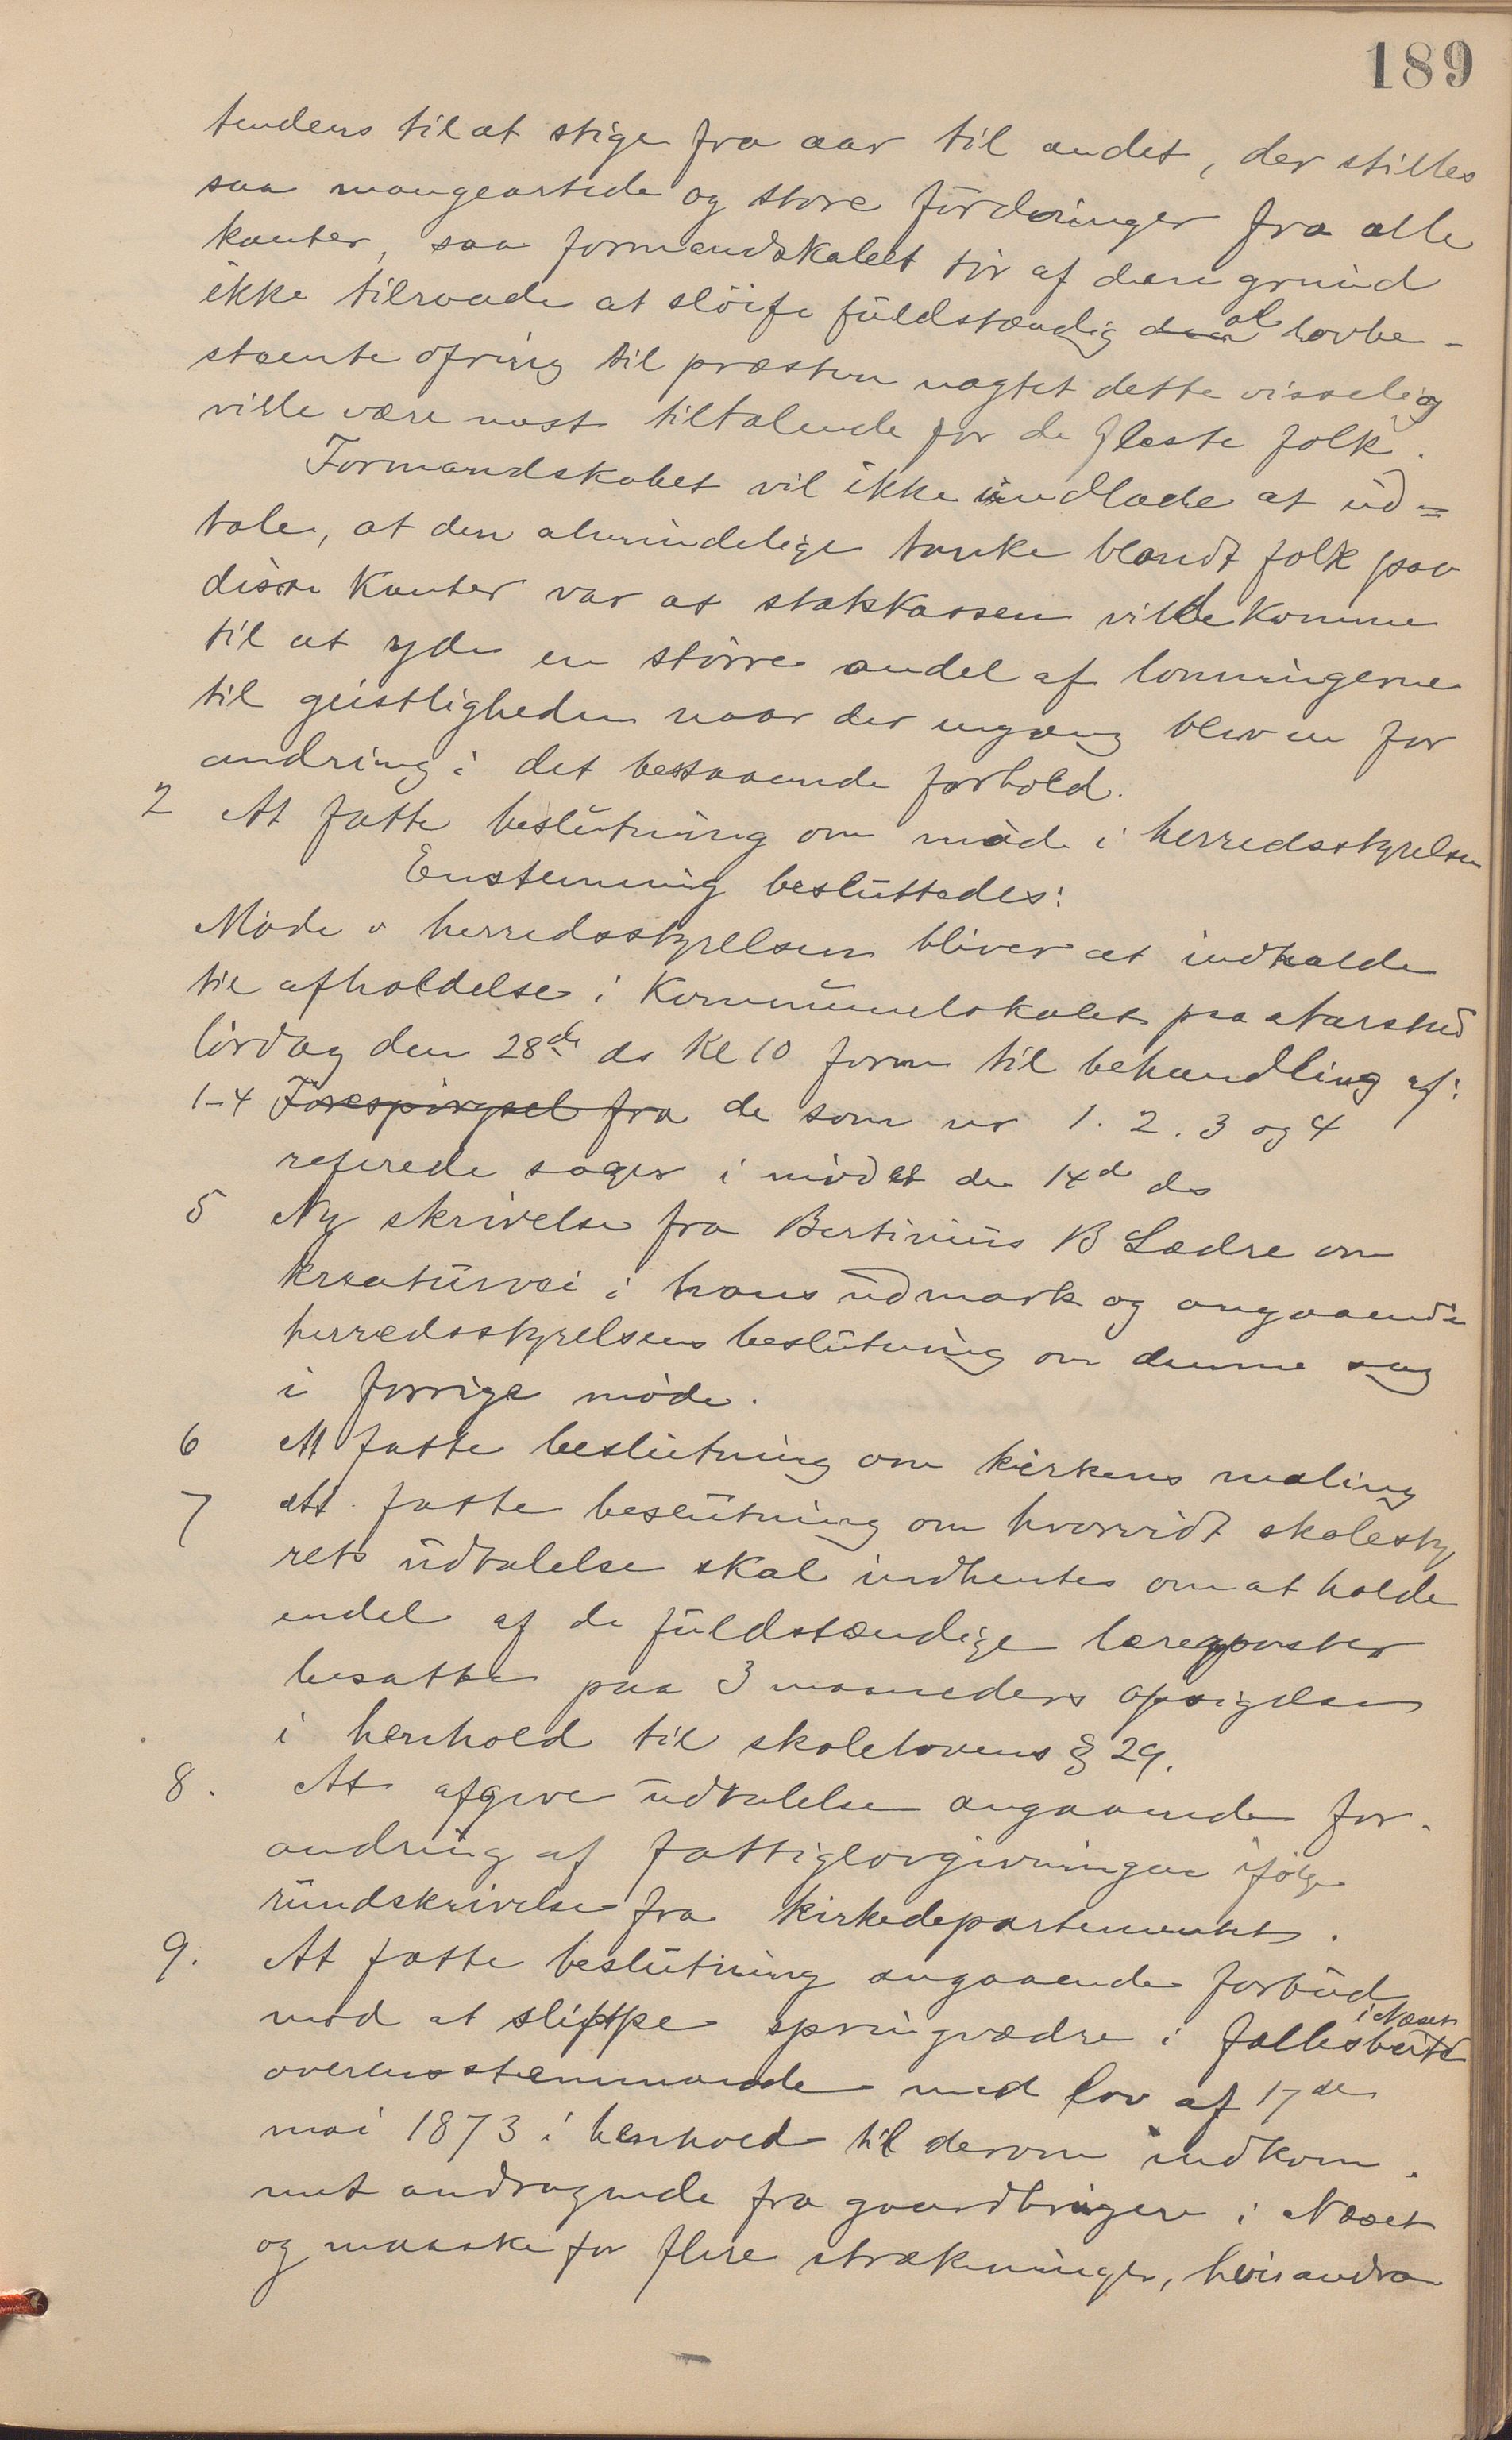 189
tendens til at stige fra aar til andet, der stilles
saa mangeartede og store fordringer fra alle
kanter, saa formandskabet tør af den grund
ikke tilraade at sløife fuldstændig den al lovbe-
stemte ofring til præsten uagtet dette visselig
ville være mest tiltalende for de fleste folk.
Formandskabet vil ikke undlade at ud=
tale, at den almindelige tanke blandt folk paa
disse kanter var at statskassen vilde komme
til at yde en større andel af lønningerne
til geistligheden naar der engang blev en for
andring i det bestaaende forhold.
2 At fatte beslutning om møde i herredsstyrelsen
Enstemmig besluttedes:
Møde i herredsstyrelsen bliver at indkalde
til afholdelse i Kommunelokalet paa Aarstad
lørdag den 28de ds kl 10 form til behandling af:
1-4 Forespørgsel fra de som nr 1. 2. 3 og 4
referede sager i mødet den 14de ds
5 Ny skrivelse fra Bertinius B Lædre om
kreaturvei i hans udmark og angaaende
herredsstyrelsens beslutning om denne sag
i forrige møde.
6 At fatte beslutning om kirkens maling
7 At fatte beslutning om hvorvidt skolesty
rets udtalelse skal indhentes om at holde
endel af de fuldstændige lærerposter
besatte paa 3 maaneders opsigelse
i henhold til skolelovens § 29.
8. At afgive udtalelse angaaende for-
andring af fattiglovgivningen ifølge
rundskrivelse fra kirkedepartementet.
9. At fatte beslutning angaaende forbud
i Næset
mod at slippe springvædre i fællesbeite
overensstemmende med lov af 17de
mai 1873 i henhold til derom indkom-
met andragende fra gaardbrugere i Næset
og maaske for flere strækninger, hvis andra